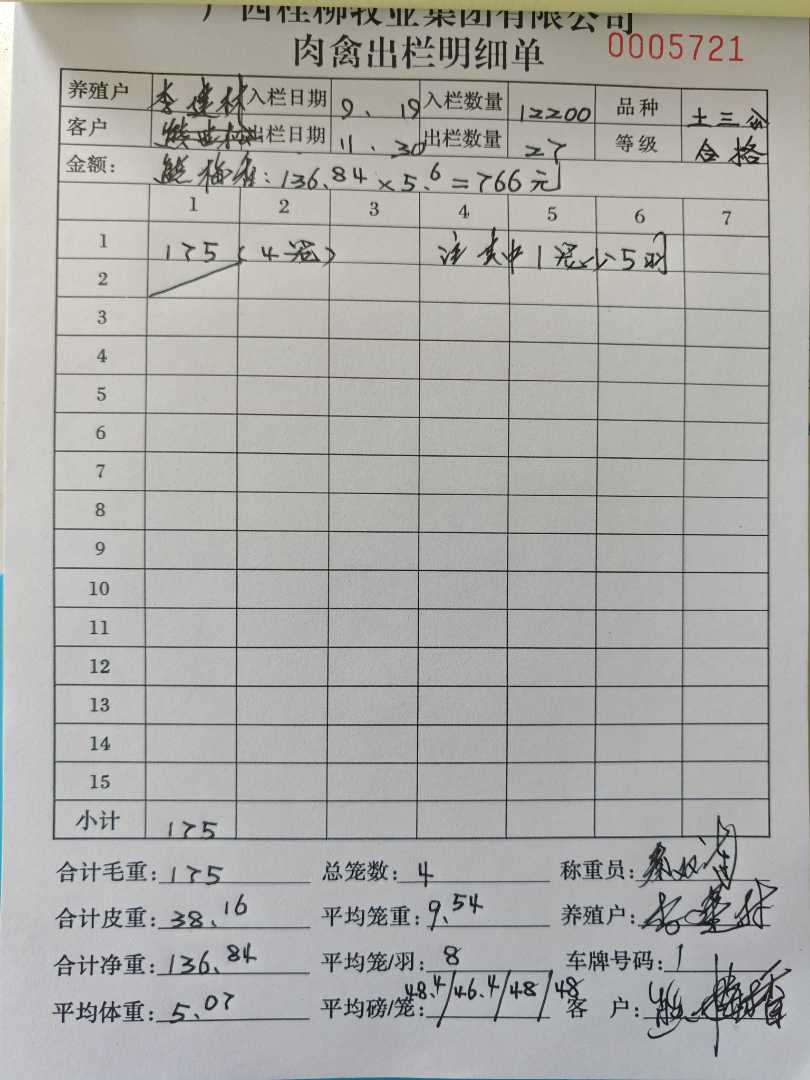 广西桂柳牧业集团有限公司
肉禽出栏明细单 0005721
养殖户 李建林 入栏日期 9.19 入栏数量 12200 品种 土三公
客户 出栏日期 11.30 出栏数量 27 等级 合格
金额: 熊梅香:136.84×5.6=766元
1 2 3 4 5 6 7
1 175(4笼) 注其中1笼少5羽
2
3
4
5
6
7
8
9
10
11
12
13
14
15
小计 175
合计毛重:175 总笼数:4 称重员:
合计皮重:38.16 平均笼重:9.54 养殖户:李建林
合计净重:136.84 平均笼/羽:8 车牌号码:1
平均体重:5.07 平均磅/笼:48.4/46.4/48/48 客 户: